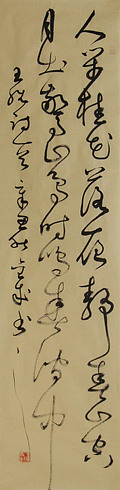 人閒桂花落夜靜春山空
月出驚山鳥時鳴春澗中
王維詩 辛丑秋 書